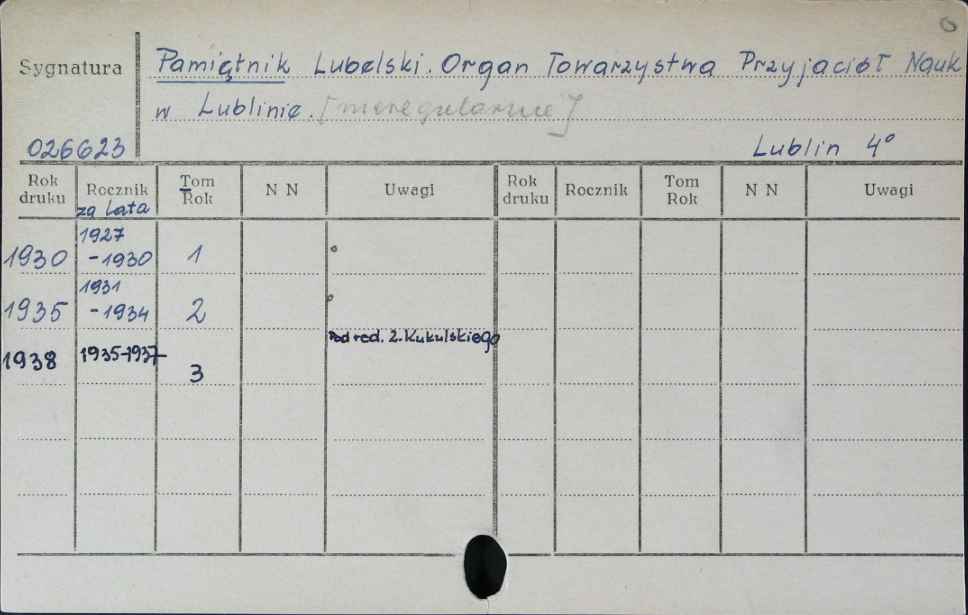 0
Sygnatura
Pamiętnik Lubelski. Organ Towarzystwa Przyjaciół Nauk
w Lublinie. [nieregularnie]
026623
Lublin 4°
Rok druku Rocznik za lata Tom Rok N N Uwagi Rok druku Rocznik Tom Rok N N Uwagi
1930 1927-1930 1
1935 1931-1934 2
Pod red. Z. Kukulskiego
1938 1935-1937 3